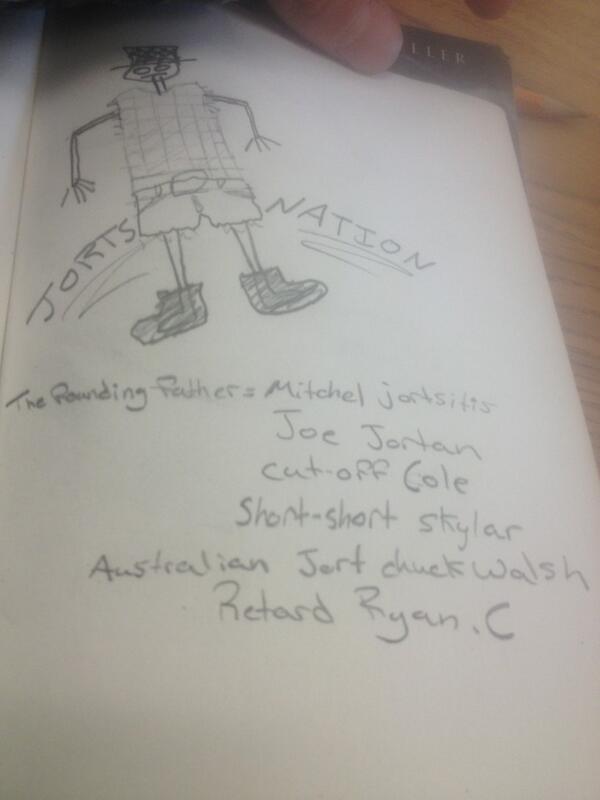 LLER
JORTS NATION
The founding father = Mitchel jortsitis
Joe Jortan
cut-off Cole
Short-short skylar
Australian Jort chuck Walsh
Retard Ryan.C